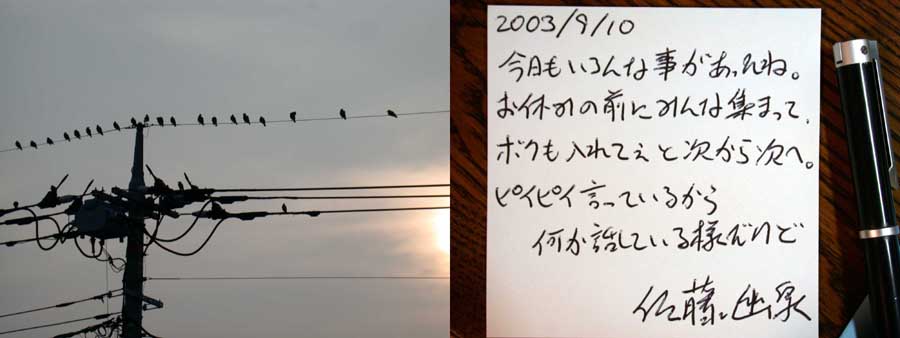 2003/9/10
今日もいろんな事があったね。
お休みの前にみんな集まって、
ボクも入れてぇと次から次へ。
ピイピイ言っているから
何か話している様だけど
佐藤